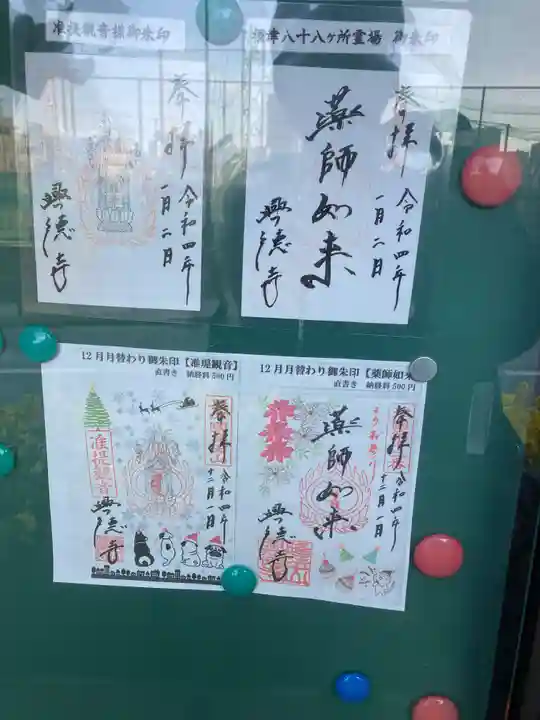 准提観音様御朱印
奉拝
令和四年
一月二日
興徳寺
摂津八十八ヶ所霊場 御朱印
奉拝
薬師如来
令和四年
一月二日
興徳寺
12月月替わり御朱印【准提観音】
直書き 納経料500円
奉拝
准提観音
令和四年
十二月一日
興徳寺
12月月替わり御朱印【薬師如来
直書き 納経料500円
奉拝
薬師如来
令和四年
十二月一日
興徳寺